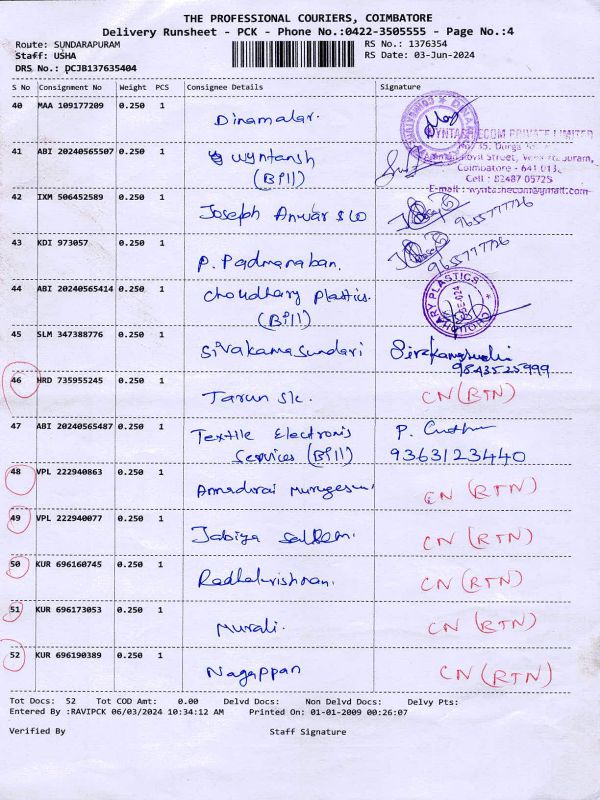 THE PROFESSIONAL COURIERS, COIMBATORE
Delivery Runsheet - PCK - Phone No.:0422-3505555 - Page No.:4
Route: SUNDARAPURAM RS No.: 1376354
Staff: USHA RS Date: 03-Jun-2024
DRS No.: DCJB137635404
S No Consignment No Weight PCS Consignee Details Signature
40 MAA 109177209 0.250 1 Dinamalar.
41 ABI 20240565507 0.250 1 Wyntash
(Bill)
WYNTASHECOM PRIVATE LIMITED
Coimbatore - 641 013.
Cell : 82487 05725
E-mail : wyntashecom@gmail.com
42 IXM 506452589 0.250 1 Joseph Anwar SLO 9655777726
43 KDI 973057 0.250 1 P. Padmanaban. 9655777726
44 ABI 20240565414 0.250 1 Choudhary Plastics.
(Bill)
CHOUDHARY PLASTICS
45 SLM 347388776 0.250 1 Sivakamasundari
9843525999
46 HRD 735955245 0.250 1 Tarun sk. CN (RTN)
47 ABI 20240565487 0.250 1 Textile Electronis P.
Services (Bill) 9363123440
48 VPL 222940863 0.250 1 CN (RTN)
49 VPL 222940077 0.250 1 Jabiya CN (RTN)
50 KUR 696160745 0.250 1 Radhakrishnan. CN (RTN)
51 KUR 696173053 0.250 1 Murali. CN (RTN)
52 KUR 696190389 0.250 1 Nagappan CN (RTN)
Tot Docs: 52 Tot COD Amt: 0.00 Delvd Docs: Non Delvd Docs: Delvy Pts:
Entered By :RAVIPCK 06/03/2024 10:34:12 AM Printed On: 01-01-2009 00:26:07
Verified By Staff Signature